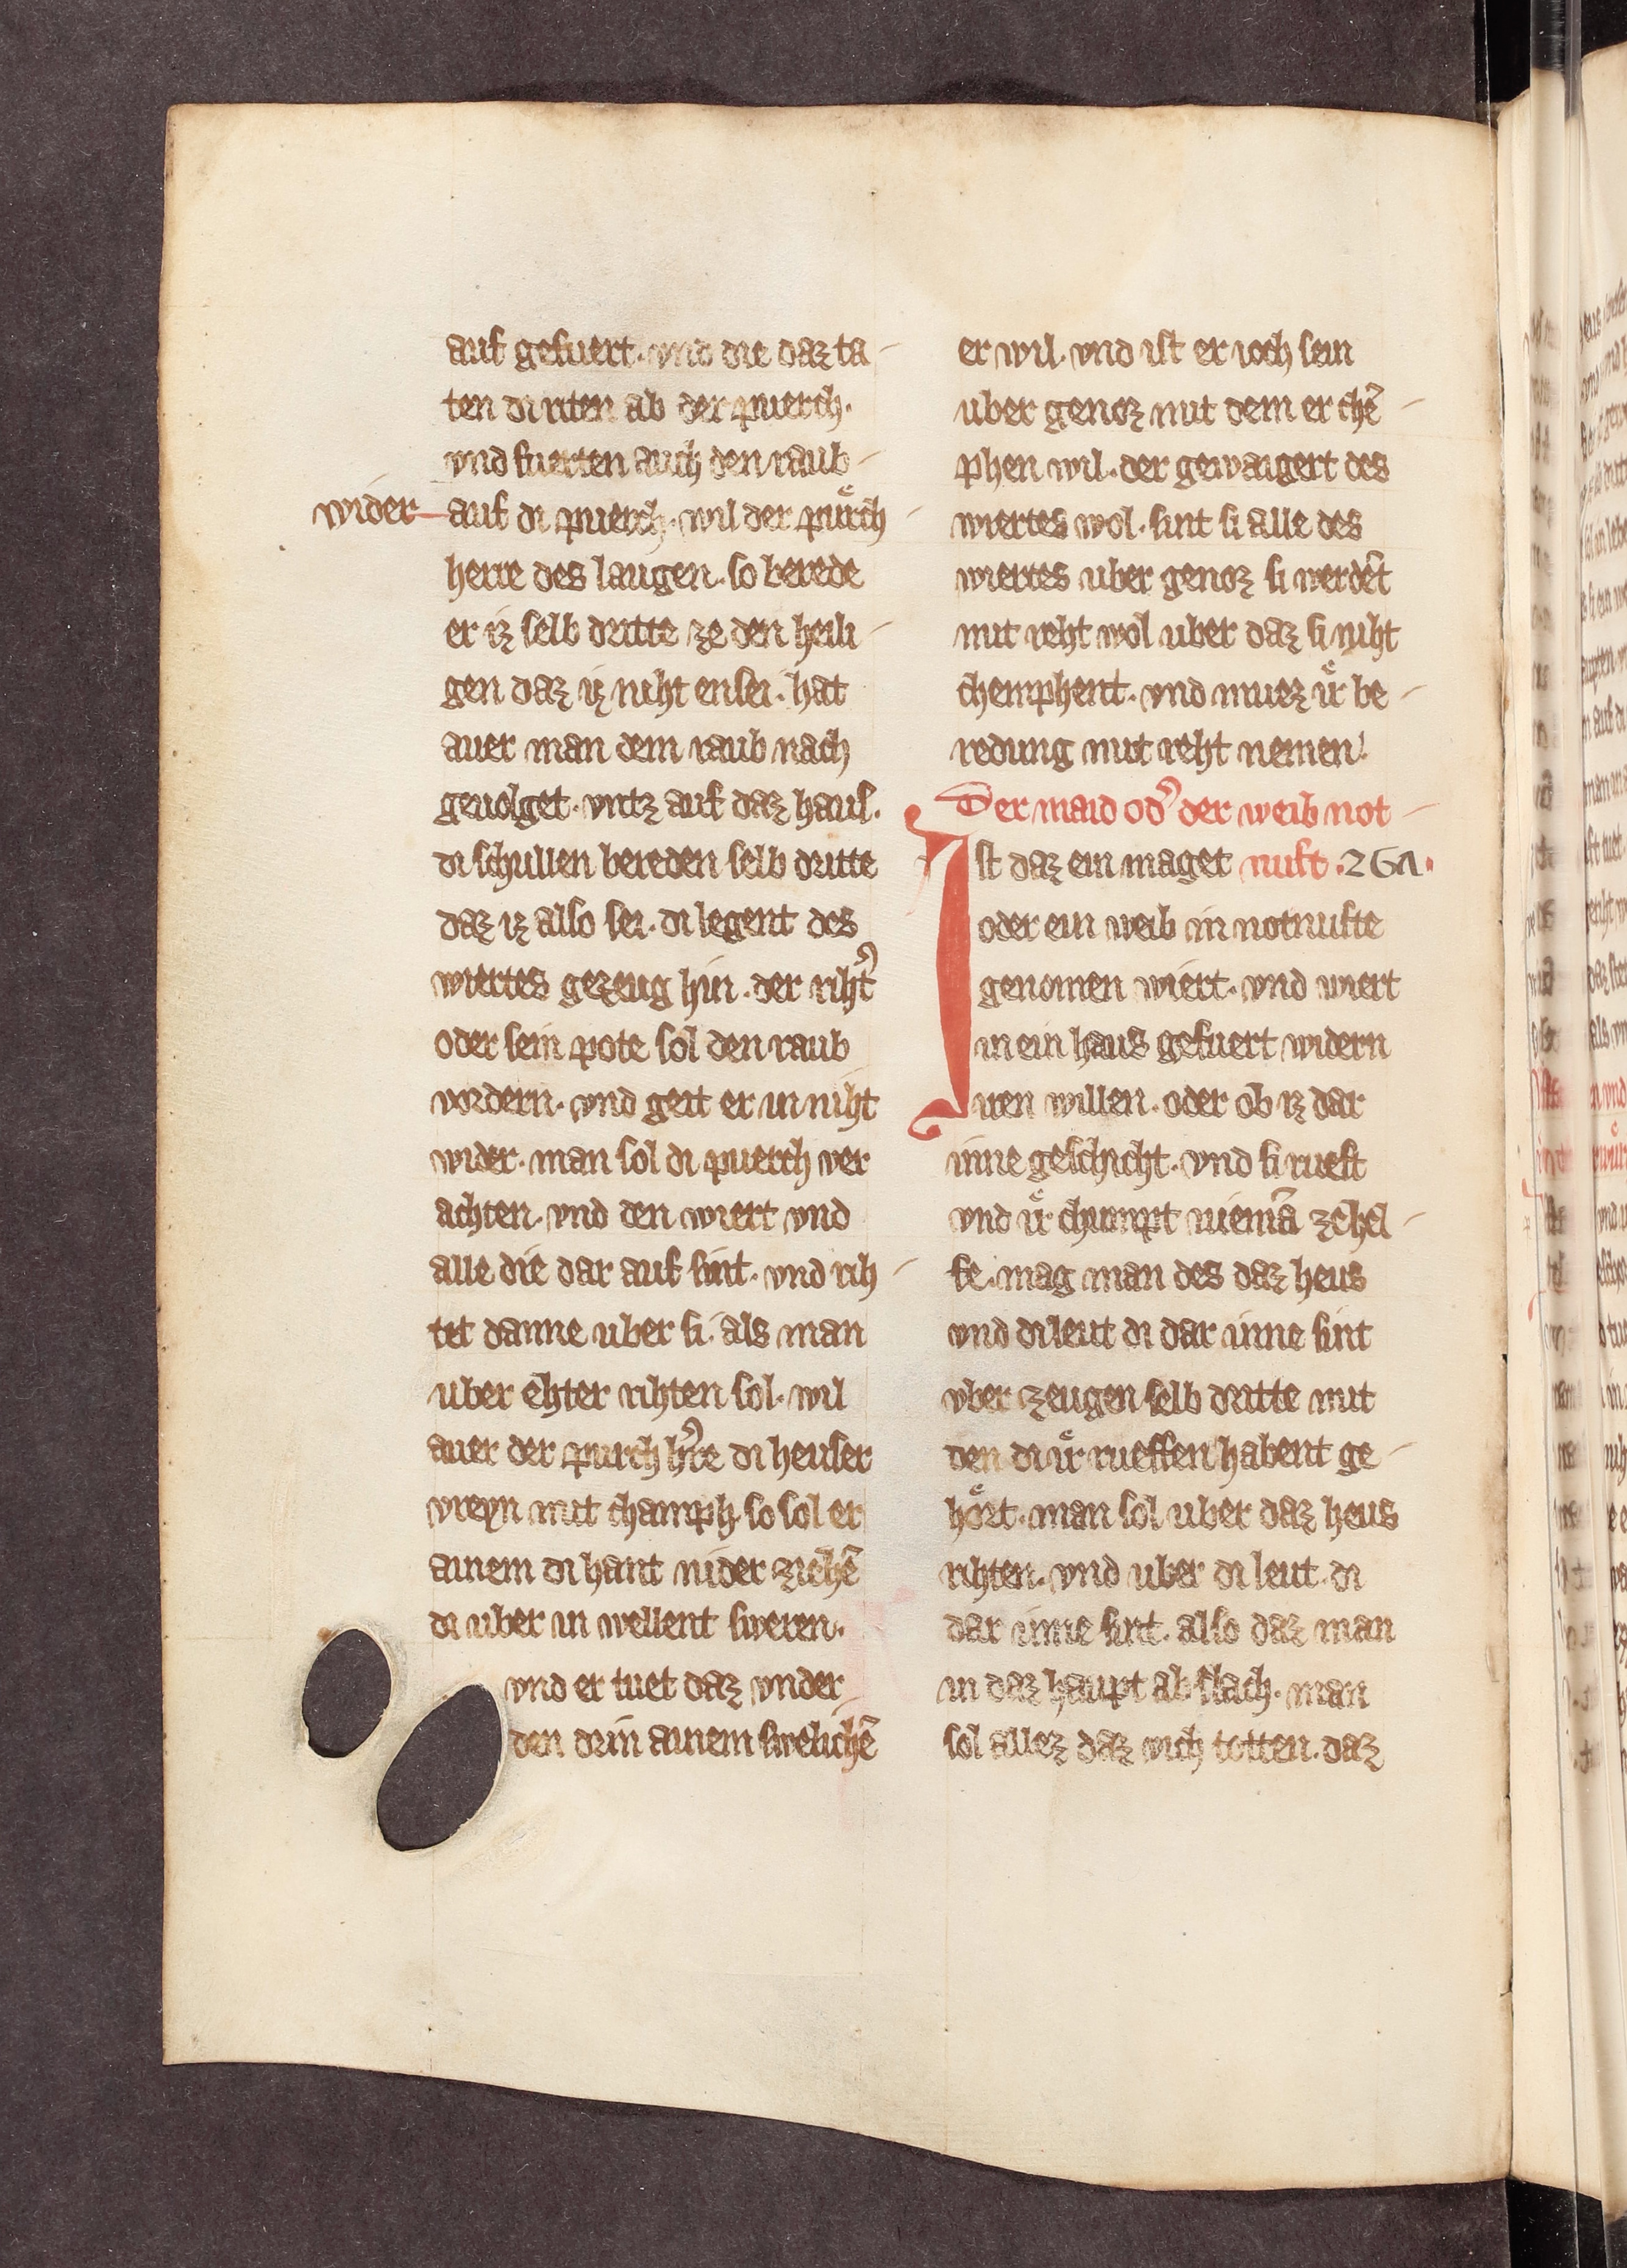 auf gefuert. vnd die daz ta-
ten di riten ab der puerch.
vnd fuerten auch den raub-
wider auf di puerch. wil der pürͤch-
herre des laugen. so berede
er iz selb dritte ze den heili-
gen daz iz niht ensei. hat
auer man dem raub nach
geuolget. vntz auf daz haus.
di schullen bereden selb dritte
daz iz also sei. di legent des
wiertes gezeug hin. der riht͛
oder sein pote sol den raub
vordern. vnd geit er in niht
wider. man sol di puerch ver
achten. vnd den wiert vnd
alle die dar auf sint. vnd rih-
tet danne uber si. als man
uber ehter rihten sol. wil
auer der purch h͛re di heuser
vreyn mit champh. so sol er
ainem di hant nider ziehē
di uber in wellent sweren.
vnd er tuet daz vnder
den drin ainem swelichē
er wil. vnd ist er ioch sein
uber genoz mit dem er chē-
phen wil. der gewaigert des
wiertes wol. sint si alle des
wiertes uber genoz si werdēt
mit reht wol uber daz si niht
chemphent. vnd muez irͤ be-
redung mit reht nemen.
Der maid od͛ der weib not-
Ist daz ein maget nuft .261.
oder ein weib in notnufte
genomen wiert. vnd wiert
in ein haus gefuert widern
iren willen. oder ob iz dar
inne geschicht. vnd si rueft
vnd irͤ chumpt niemā zehel-
fe. mag man des daz heus
vnd di leut di dar inne sint
vber zeugen selb dritte mit
den di irͤ rueffen habent ge-
hoͤrt. man sol uber daz heus
rihten. vnd uber di leut di
dar inne sint. also daz man
in daz haupt ab slach. man
sol allez daz vich totten. daz